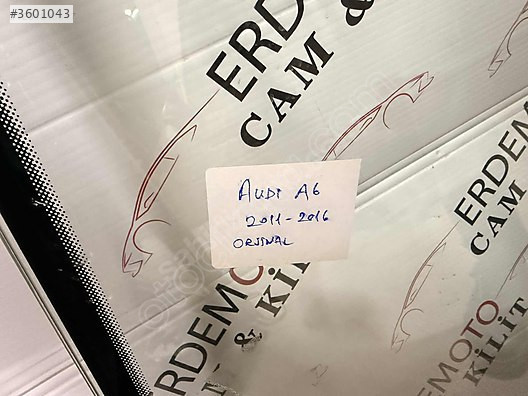 #3601043
ERDEM
CAM &
AUDI A6
2011-2016
ORJİNAL
ERDEMOTO
& KİLİT
ERDEMOTO
CAM
ERDEMOTO
KİLİT